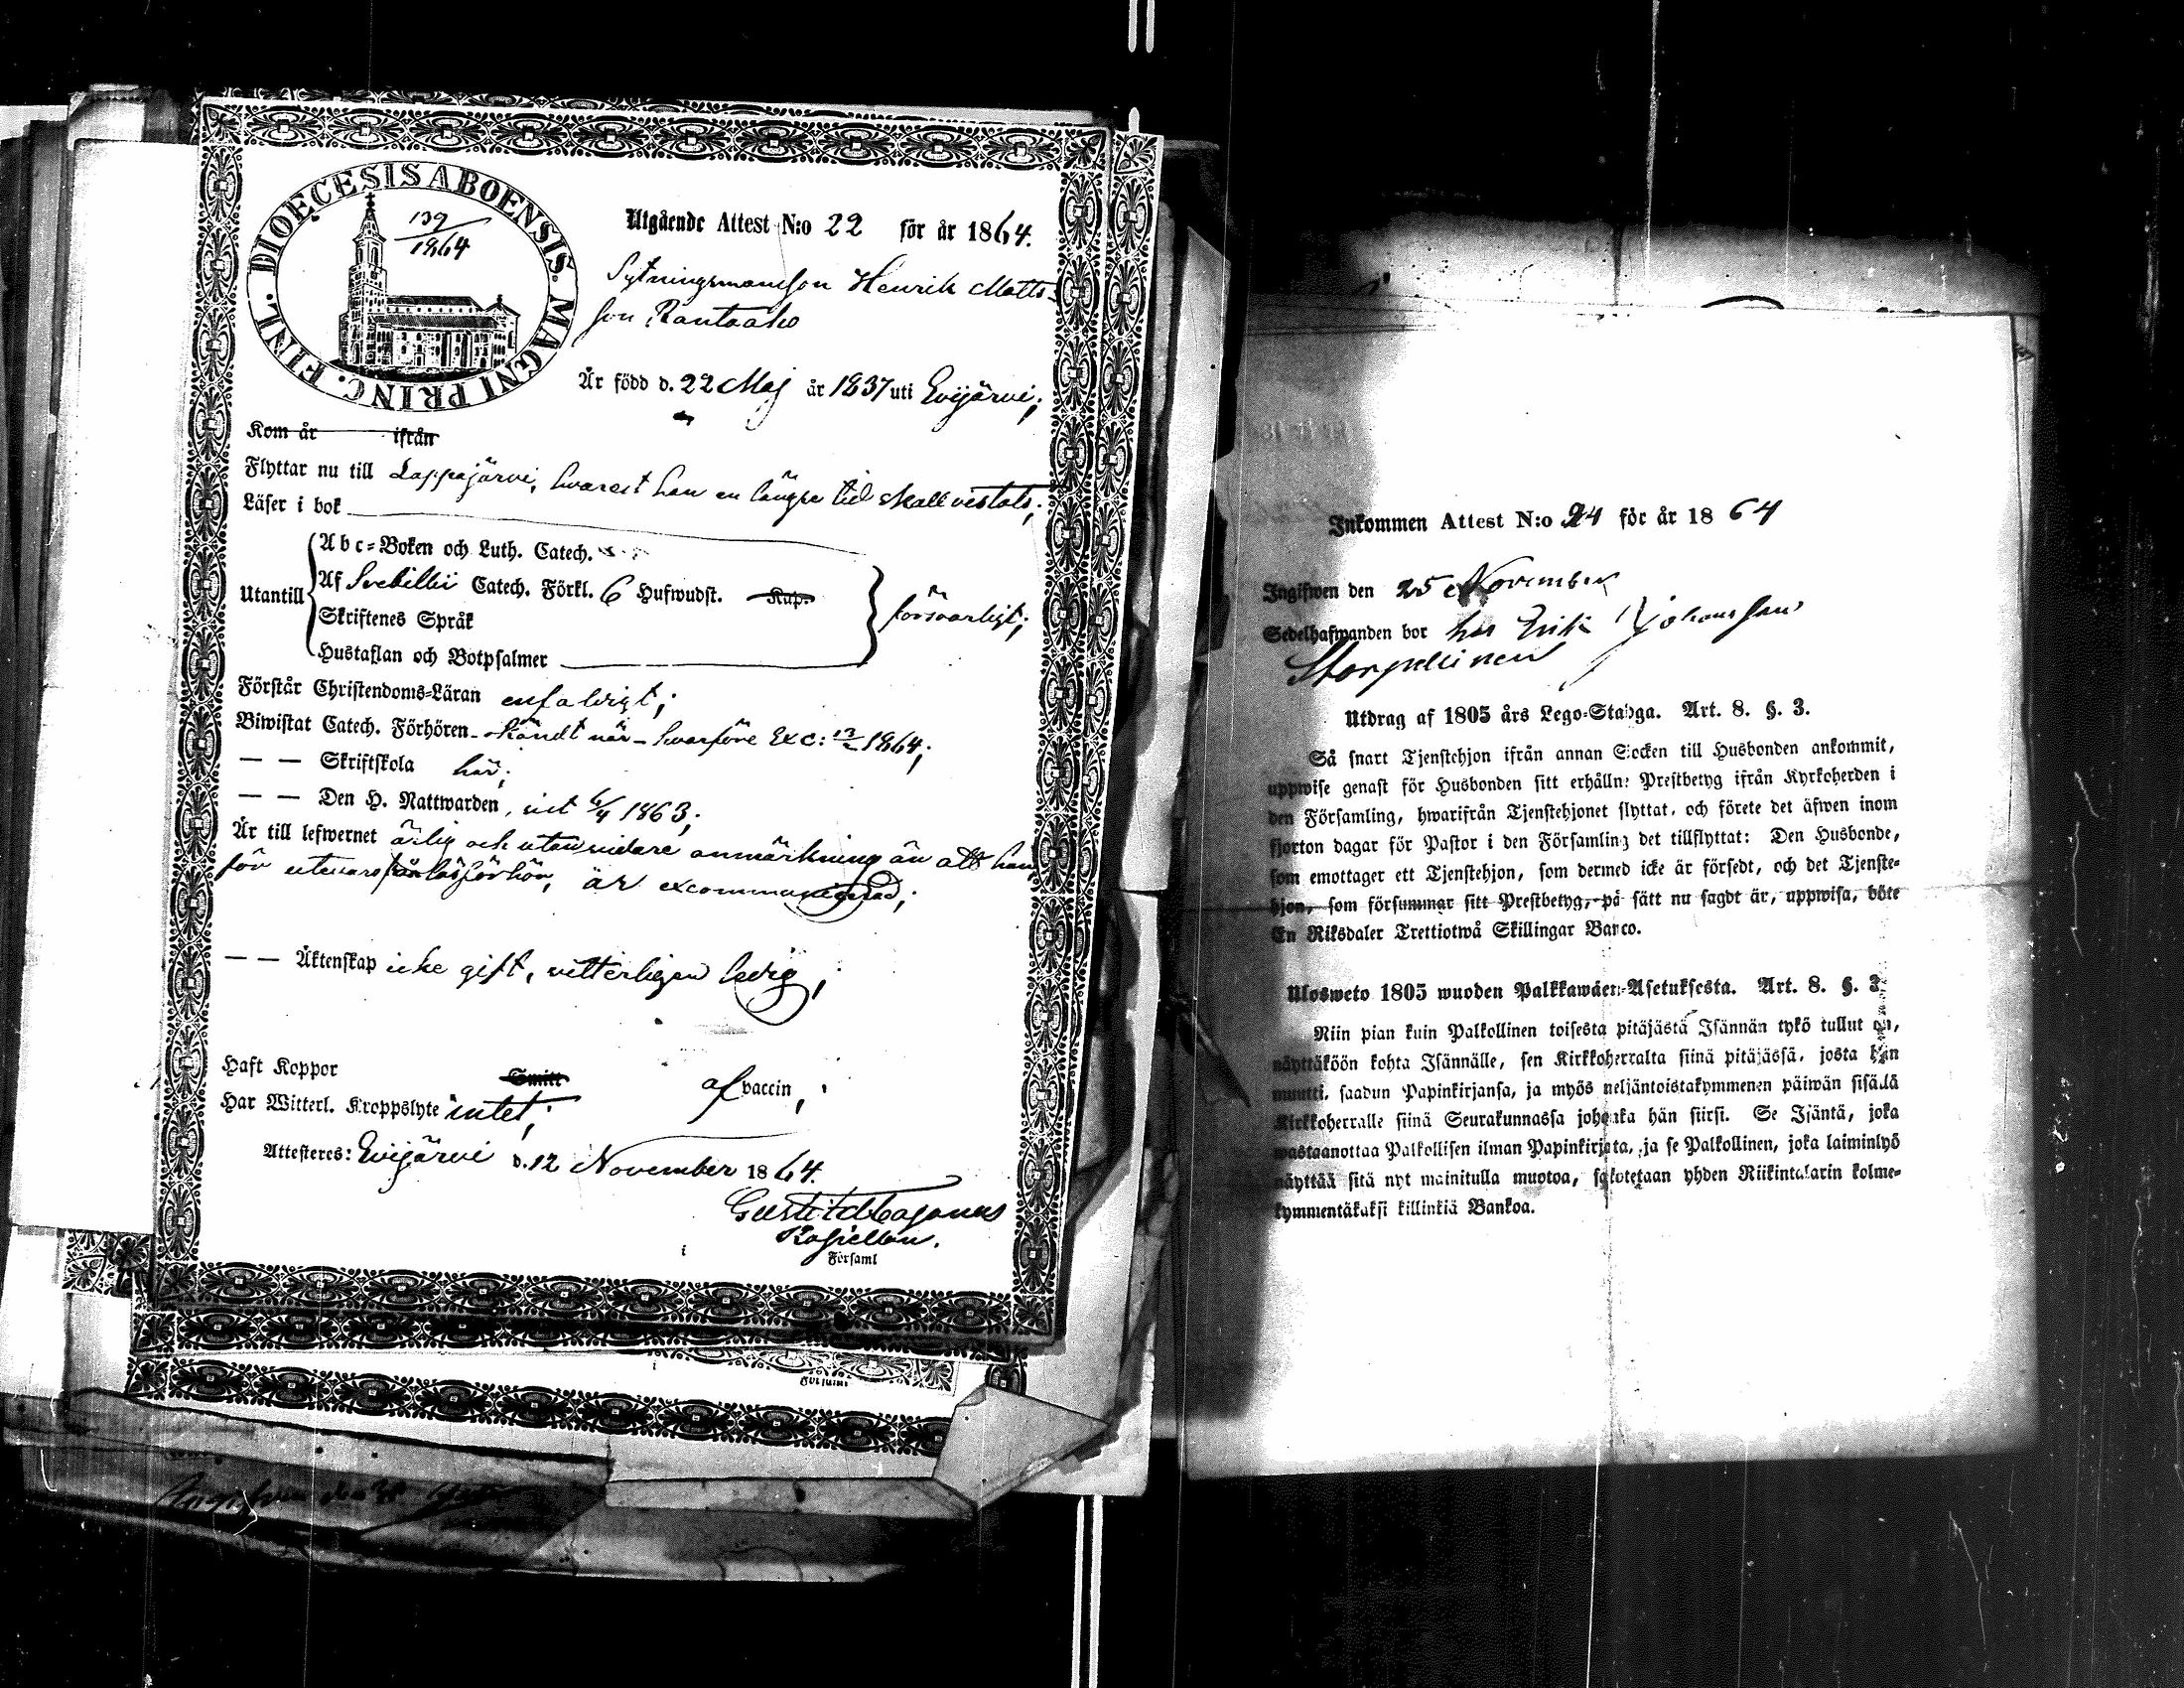 DIOECESIS ABOENSIS. MAGNI PRINC. FINL.
139
1864
Utgående Attest N:o 22 för år 1864.
Sytningsmansson Henrik Matts-
son Rantaaho
Är född d. 22 Maj år 1837 uti Evijärvi;
Kom år ifrån
Flyttar nu till Lappajärvi, hvarest han en längre tid skall vistats;
Läser i bok
Abc-Boken och Luth. Catech.
Utantill
Af Svebilii Catech. Förkl. 6 Hufwudst. Kap.
försvarligt;
Skriftenes Språk
Hustaflan och Botpsalmer
Förstår Christendoms-Läran enfaldigt;
Biwistat Catech. Förhören - okändt när - hvarföre Exc: 1864;
— — Skriftskola här;
— — Den H. Nattwarden, sist 6/4 1863;
Är till lefwernet ärlig och utan vidare anmärkning än att han
för utevaro från läsförhör, är excommunicerad;
— — Äktenskap icke gift, vitterligen ledig;
Haft Koppor Smitt af vaccin,
Har Witterl. Kroppslyte intet;
Attesteres: Evijärvi d. 12 November 1864.
Kapellan.
i Församl
Inkommen Attest N:o 24 för år 1864
Ingifwen den 25 November
Sedelhafwanden bor hos Erik Johansson
Utdrag af 1805 års Lego-Stadga. Art. 8. §. 3.
Så snart Tjenstehjon ifrån annan Socken till Husbonden ankommit,
uppwise genast för Husbonden sitt erhållne Prestbetyg ifrån Kyrkoherden i
den Församling, hwarifrån Tjenstehjonet flyttat, och förete det äfwen inom
fjorton dagar för Pastor i den Församling det tillflyttat: Den Husbonde,
som emottager ett Tjenstehjon, som dermed icke är försedt, och det Tjenste-
hjon, som försummar sitt Prestbetyg, på sätt nu sagdt är, uppwisa, böte
En Riksdaler Trettiotwå Skillingar Banco.
Ulosweto 1805 wuoden Palkkawäen-Asetuksesta. Art. 8. §. 3.
Niin pian kuin Palkollinen toisesta pitäjästä Isännän tykö tullut on,
näyttäköön kohta Isännälle, sen Kirkkoherralta siinä pitäjässä, josta hän
muutti, saadun Papinkirjansa, ja myös neljäntoistakymmenen päiwän sisällä
Kirkkoherralle siinä Seurakunnassa johonka hän siirsi. Se Isäntä, joka
wastaanottaa Palkollisen ilman Papinkirjata, ja se Palkollinen, joka laiminlyö
näyttää sitä nyt mainitulla muotoa, sakotetaan yhden Riikintalarin kolme-
kymmentäkaksi killinkiä Bankoa.